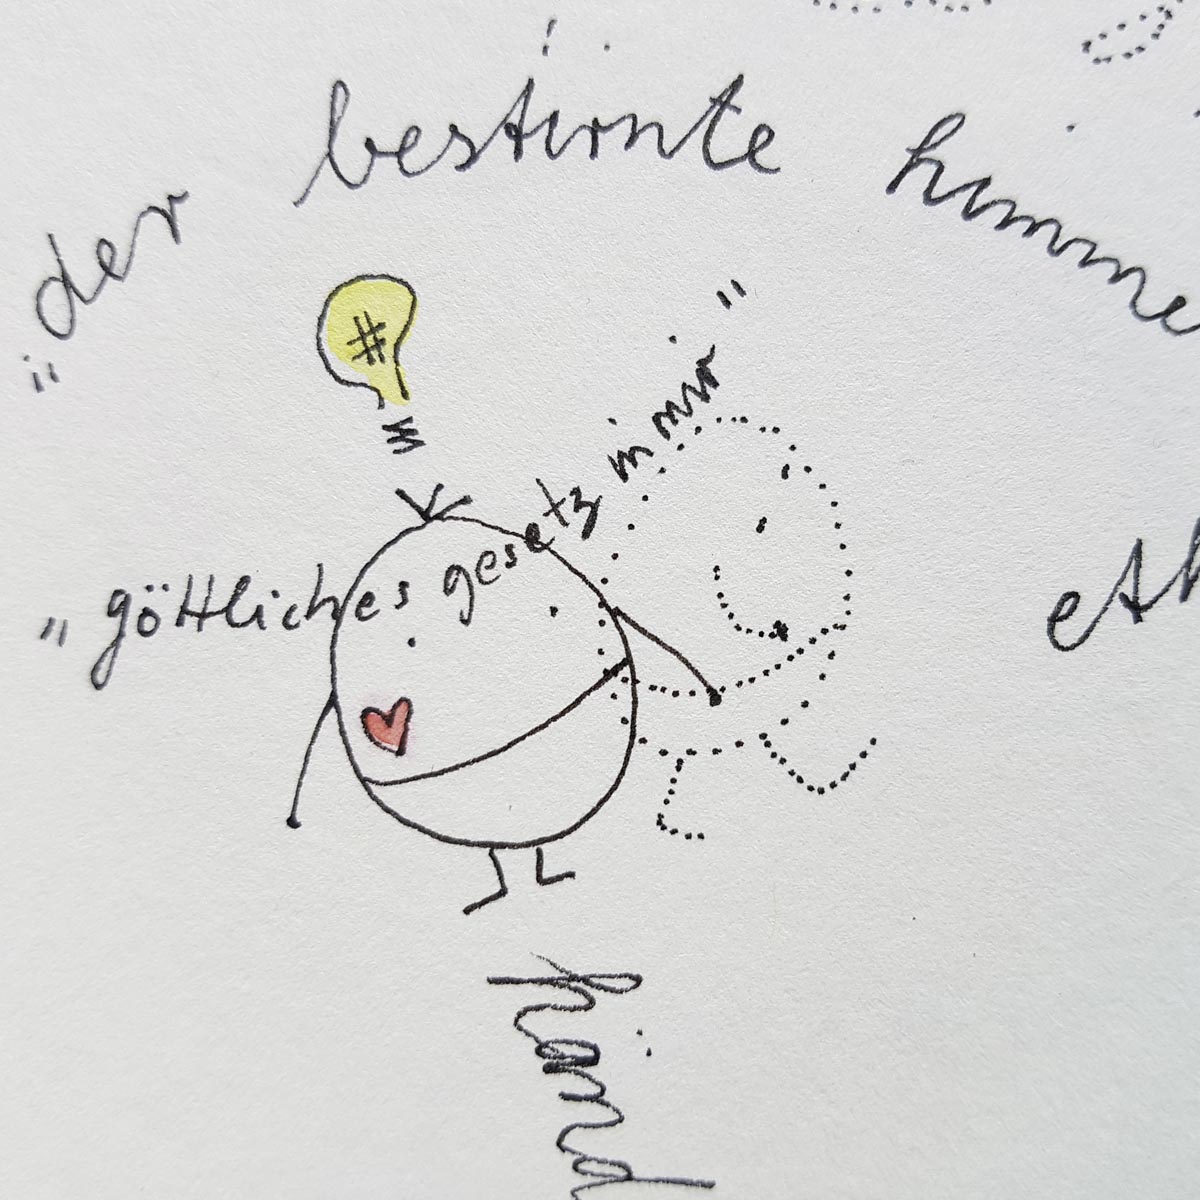 "der bestirnte himme
#
"göttliches gesetz in mir"
eth
händ